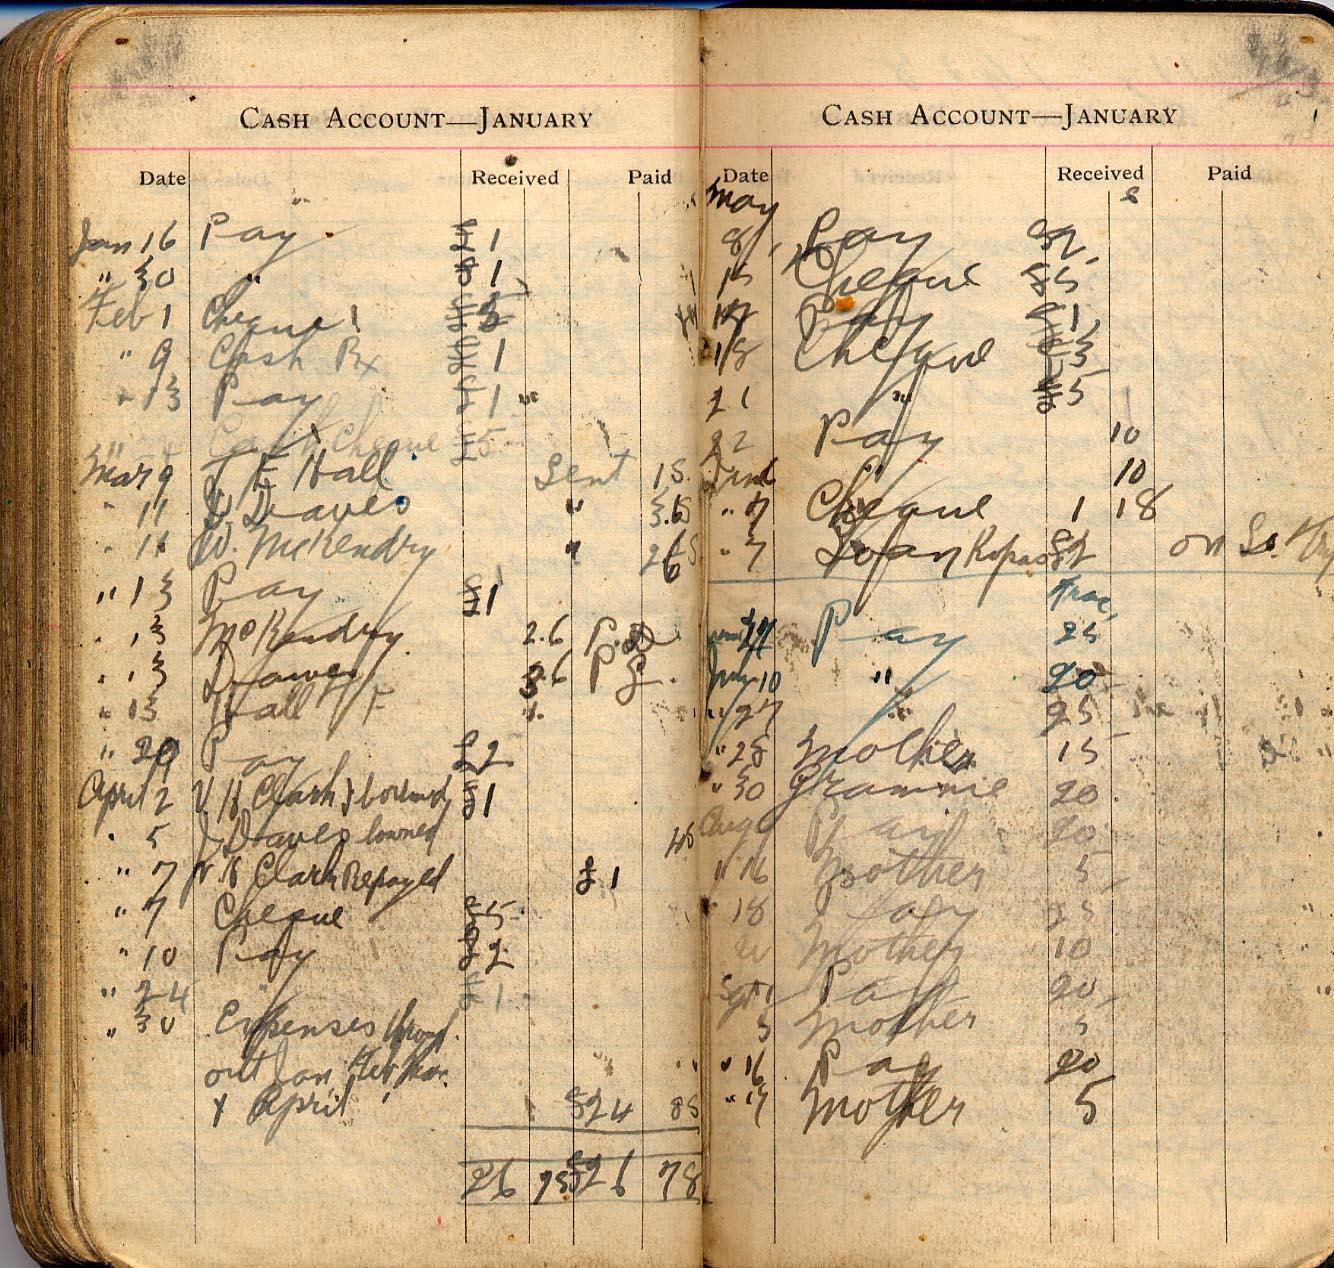 CASH ACCOUNT—JANUARY
Date Received Paid
Jan 16 Pay £1
" 30 " £1
Feb 1 Cheque £5
" 9 Cash Rx £1
" 13 Pay £1
Cash Cheque £5
Mar 9 T E Hall Sent 1S.
" 11 J. Draves " 3.6
" 11 W. McKendry " 2 6
" 13 Pay £1
" 13 McKendry 2.6 Pd
" 13 Draves 3.6 Pd
" 13 Hall T F 1.
" 29 Pay £2
April 2 V H Clark £1
" 5 J Draves lowned 4S
" 7 V H Clark Repayed £1
" 7 Cheque £5
" 10 Pay £2
" 24 " £1
" 30 Expenses throu
out Jan Feb Mar
& April £24 8S
26 £26 78
CASH ACCOUNT—JANUARY
Date Received Paid
May
8 Pay £2
15 Cheque £5
Pay £1
18 Cheque £3
21 " £5
22 Pay 10
" 10
" 7 Cheque 1 18
" 7 Loan Repaid £2 on
Frac
Pay 25
July 10 " 20
" 27 " 25
" 28 Mother 15
" 30 Grannie 20
Aug Pay 20
" 16 Mother 5
18 Pay 25
Mother 10
Pay 20
5 Mother 5
" 16 Pay 20
" 17 Mother 5